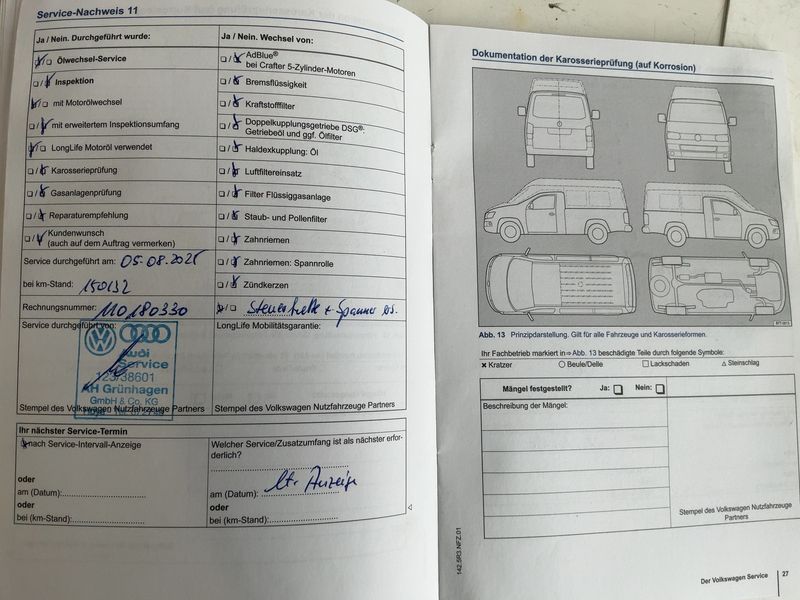 Service-Nachweis 11
Ja / Nein. Durchgeführt wurde:
Ölwechsel-Service
Inspektion
mit Motorölwechsel
mit erweitertem Inspektionsumfang
LongLife Motoröl verwendet
Karosserieprüfung
Gasanlagenprüfung
Reparaturempfehlung
Kundenwunsch
(auch auf dem Auftrag vermerken)
Service durchgeführt am: 05.08.2025
bei km-Stand: 150132
Rechnungsnummer: 110180330
Service durchgeführt von:
Audi
Service
123/38601
AH Grünhagen
GmbH & Co. KG
Stempel des Volkswagen Nutzfahrzeuge Partners
Ja / Nein. Wechsel von:
AdBlue®
bei Crafter 5-Zylinder-Motoren
Bremsflüssigkeit
Kraftstofffilter
Doppelkupplungsgetriebe DSG®:
Getriebeöl und ggf. Ölfilter
Haldexkupplung: Öl
Luftfiltereinsatz
Filter Flüssiggasanlage
Staub- und Pollenfilter
Zahnriemen
Zahnriemen: Spannrolle
Zündkerzen
Steuerkette + Spanner
LongLife Mobilitätsgarantie:
Stempel des Volkswagen Nutzfahrzeuge Partners
Ihr nächster Service-Termin
nach Service-Intervall-Anzeige
oder
am (Datum):
oder
bei (km-Stand):
Welcher Service/Zusatzumfang ist als nächster erfor-
derlich?
am (Datum): lt. Anzeige
oder
bei (km-Stand):
Dokumentation der Karosserieprüfung (auf Korrosion)
Abb. 13 Prinzipdarstellung. Gilt für alle Fahrzeuge und Karosserieformen.
Ihr Fachbetrieb markiert in ⇒ Abb. 13 beschädigte Teile durch folgende Symbole:
Kratzer Beule/Delle Lackschaden Steinschlag
Mängel festgestellt? Ja: Nein:
Beschreibung der Mängel:
Stempel des Volkswagen Nutzfahrzeuge
Partners
142.5R3.NFZ.01
Der Volkswagen Service 27